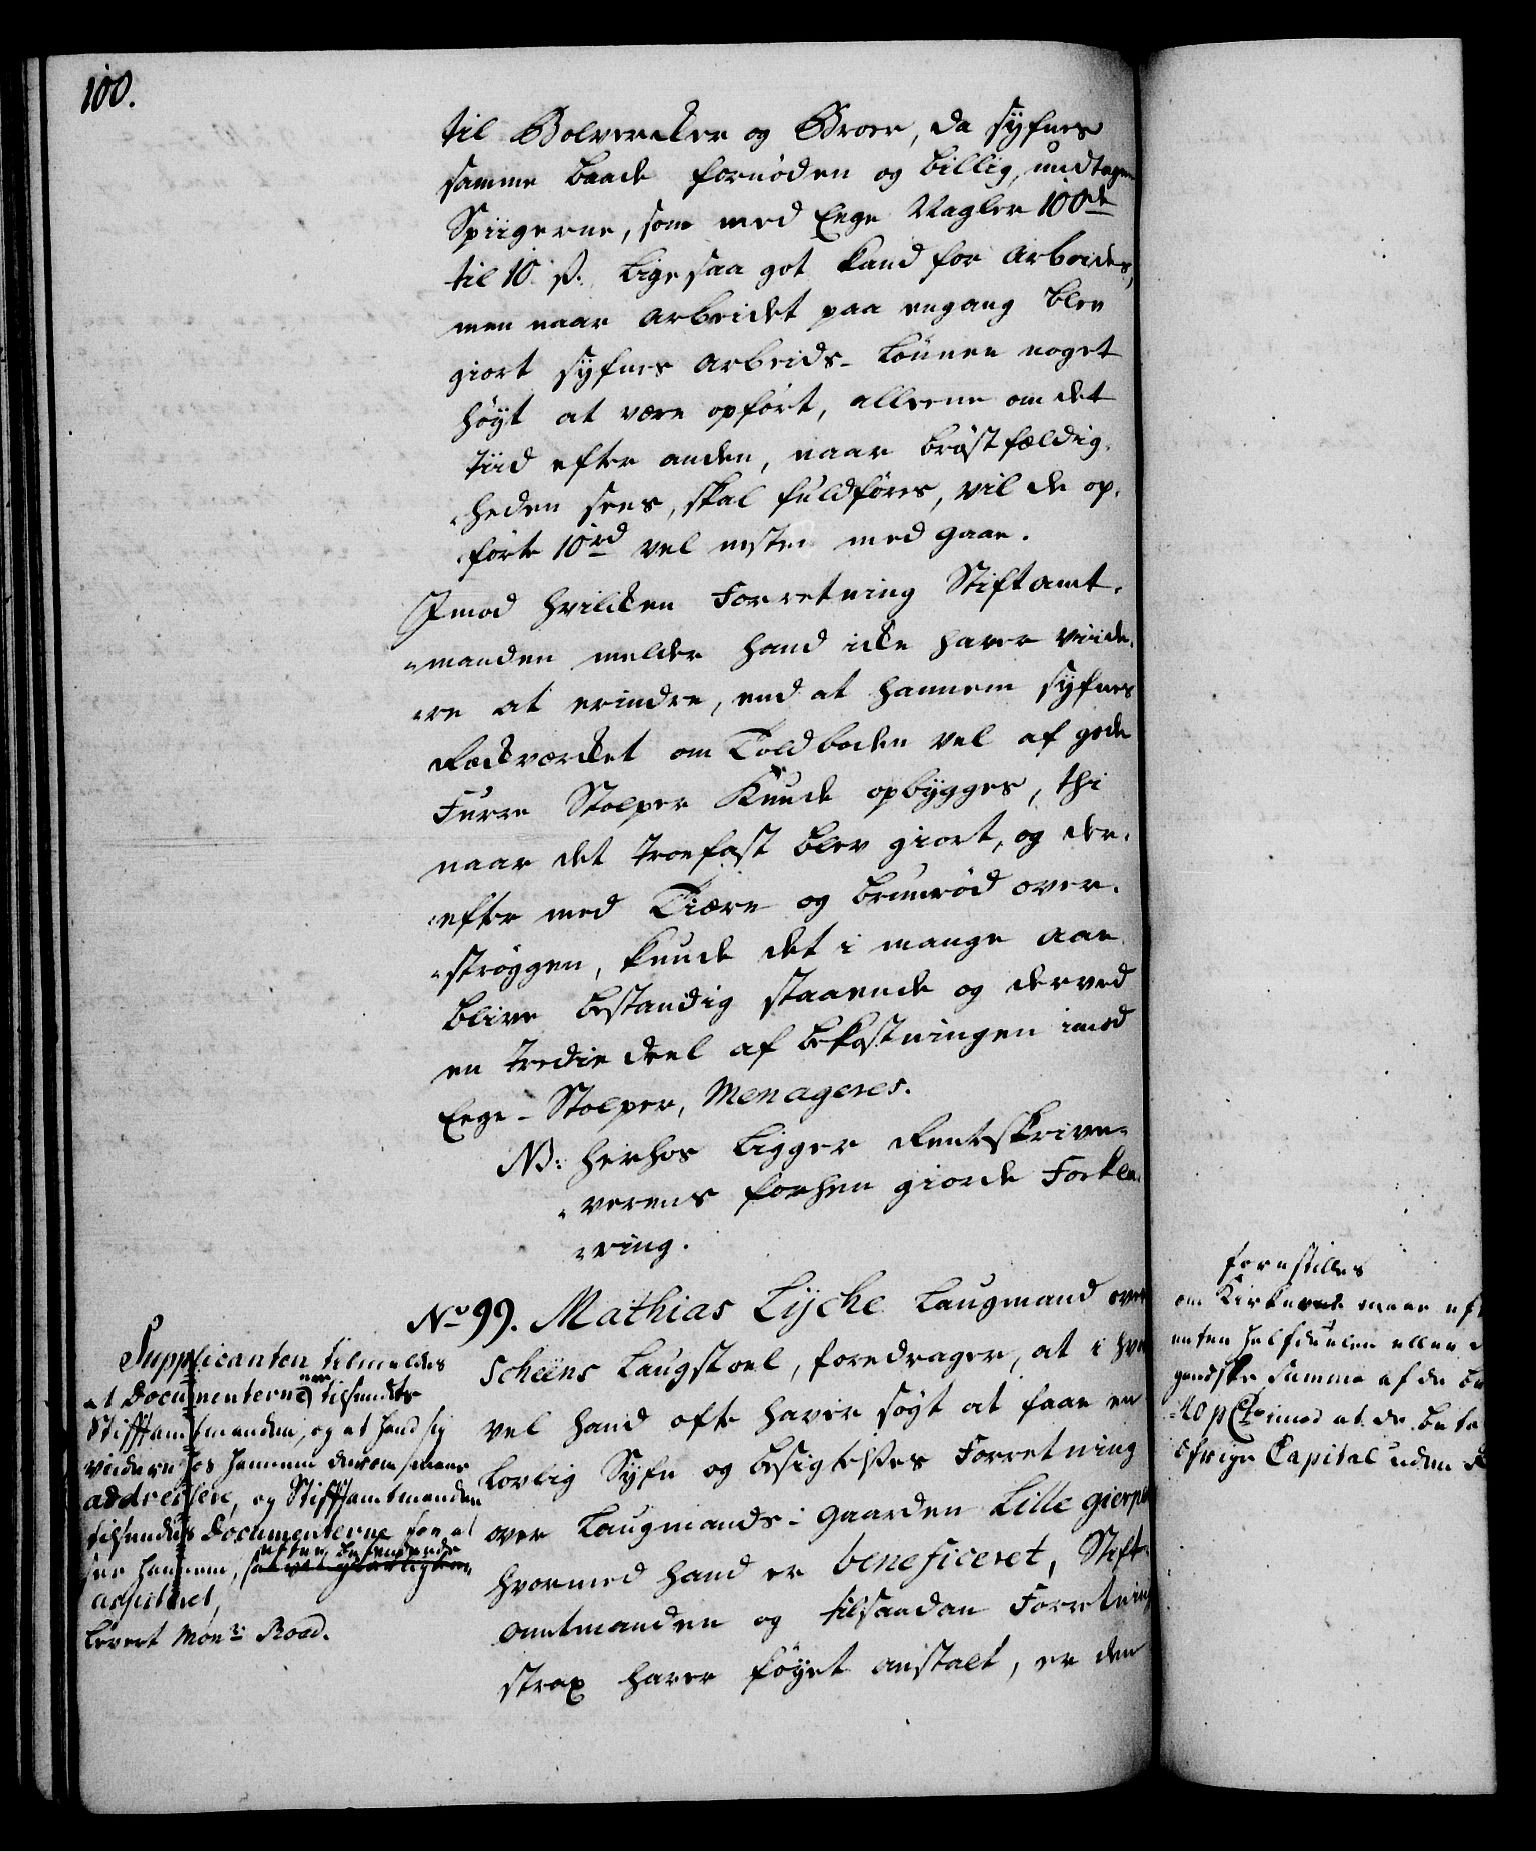 100.
til Bolvercker og Broer, da syfnes
samme baade fornöden og billig, undtagen
Spiigerne, som med Eege Nagler 10 rd
til 10 ß. ligesaa got kand for arbeides,
men naar arbeidet paa engang blev
giort syfnes arbeids- Lönnen noget
höyt at være opfört, alleene om det
Tiid efter anden, naar bröstfældig-
heden sees, skal fuldföres, vil de op-
förte 10 rd vel mesten med gaae.
Imod hvilcken Forretning Stiftamt-
manden melder hand icke haver viide-
re at erindre, end at hannem syfnes
Rackværcket om Toldboden vel af gode
Furre Stolper Kunde opbygges, thi
naar det troefast blev giort, og der-
efter med Tiære og brunröd over-
ströggen, kunde det i mange aar
blive bestandig staaende og derved
en tredie deel af bekostningen imod
Eege-Stolper, Menageres.
NB: herhos ligger Rentskrive-
verens forhen giorde Forkla-
ring.
No 99. Mathias Lÿche Laugmand over
Scheens Laugstoel, foredrager, at i hvor
vel hand ofte haver sögt at faae en
lovlig Syfn og besigtelses Forretning
over Laugmands-Gaarden Lille gierpen
hvormed hand er beneficeret, Stift-
amtmanden og til saadan Forretning
strax haver föyet anstalt, er den
Supplicanten tilmeldes
at Documenterne er tilsendte
Stifftamtmanden, og at hand sig
videre hos hannem derom maae
addressere, og Stifftamtmanden
tilsendes Documenterne for at
see hannem, efter
assisteret,
Levert Monsr Road.
forestilles
om Kirkerne maae eft
enten helfdeelen eller d
gandske Summa af de be
40 pCto imod at de beta
öfrige Capital uden